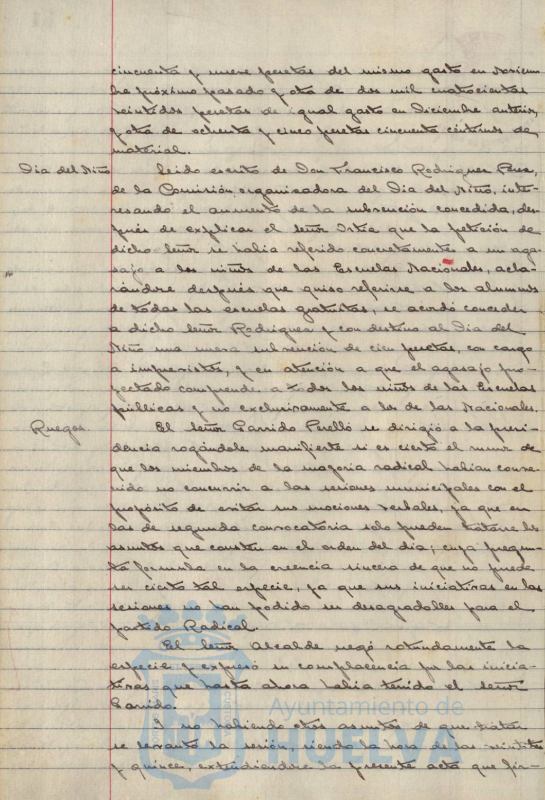 cincuenta y nueve pesetas del mismo gasto en Noviem-
bre próximo pasado y otra de dos mil cuatrocientas
veintidos pesetas de igual gasto en Diciembre anterior,
y otra de ochenta y cinco pesetas cincuenta céntimos de
material.
Dia del Niño
Leido escrito de Don Francisco Rodriguez Perez,
de la Comisión organizadora del Dia del Niño, inte-
resando el aumento de la subvención concedida, des-
pués de explicar el señor Ortiz que la petición de
dicho señor se habia referido concretamente a un aga-
sajo a los niños de las Escuelas Nacionales, acla-
rándose después que quiso referirse a los alumnos
de todas las escuelas gratuitas, se acordó conceder
a dicho señor Rodriguez y con destino al Dia del
Niño una nueva subvención de cien pesetas, con cargo
a imprevistos, y en atención a que el agasajo pro-
yectado comprende a todos los niños de las Escuelas
públicas y no exclusivamente a los de las Nacionales.
Ruegos.
El señor Garrido Perelló se dirigió a la presi-
dencia rogándole manifieste si es cierto el rumor de
que los miembros de la mayoria radical habian conve-
nido no concurrir a las sesiones municipales con el
propósito de evitar sus mociones verbales, ya que en
las de segunda convocatoria solo pueden tratarse los
asuntos que consten en el orden del dia; cuya pregun-
ta formula en la creencia sincera de que no puede
ser cierta tal especie, ya que sus iniciativas en las
sesiones no han podido ser desagradables para el
partido Radical.
El señor Alcalde negó rotundamente la
especie y expresó su complacencia por las inicia-
tivas que hasta ahora habia tenido el señor
Garrido.
Y no habiendo otros asuntos de que tratar
se levanta la sesión, siendo la hora de las veintitres
y quince, extendiéndose la presente acta que fir-
Ayuntamiento de
HUELVA